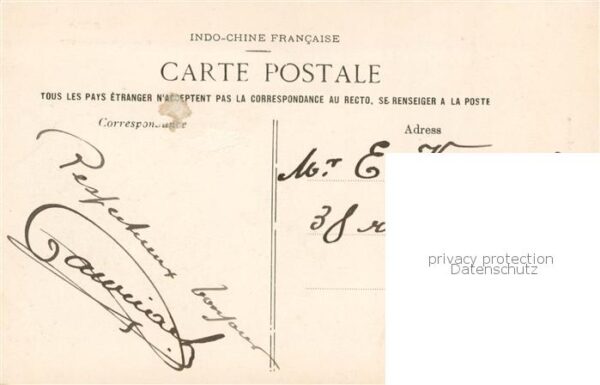 INDO-CHINE FRANÇAISE
CARTE POSTALE
TOUS LES PAYS ÉTRANGER N'ACCEPTENT PAS LA CORRESPONDANCE AU RECTO, SE RENSEIGER A LA POSTE
Correspondance
Adress
Respectueux bonjour
Mr E
38 r
privacy protection
Datenschutz